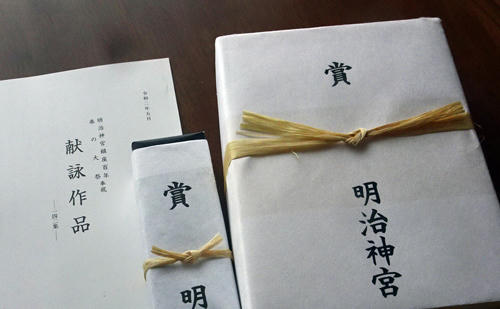 令和二年五月
明治神宮鎮座百年奉祝
春の大祭
献詠作品
賞
明
賞
明治神宮